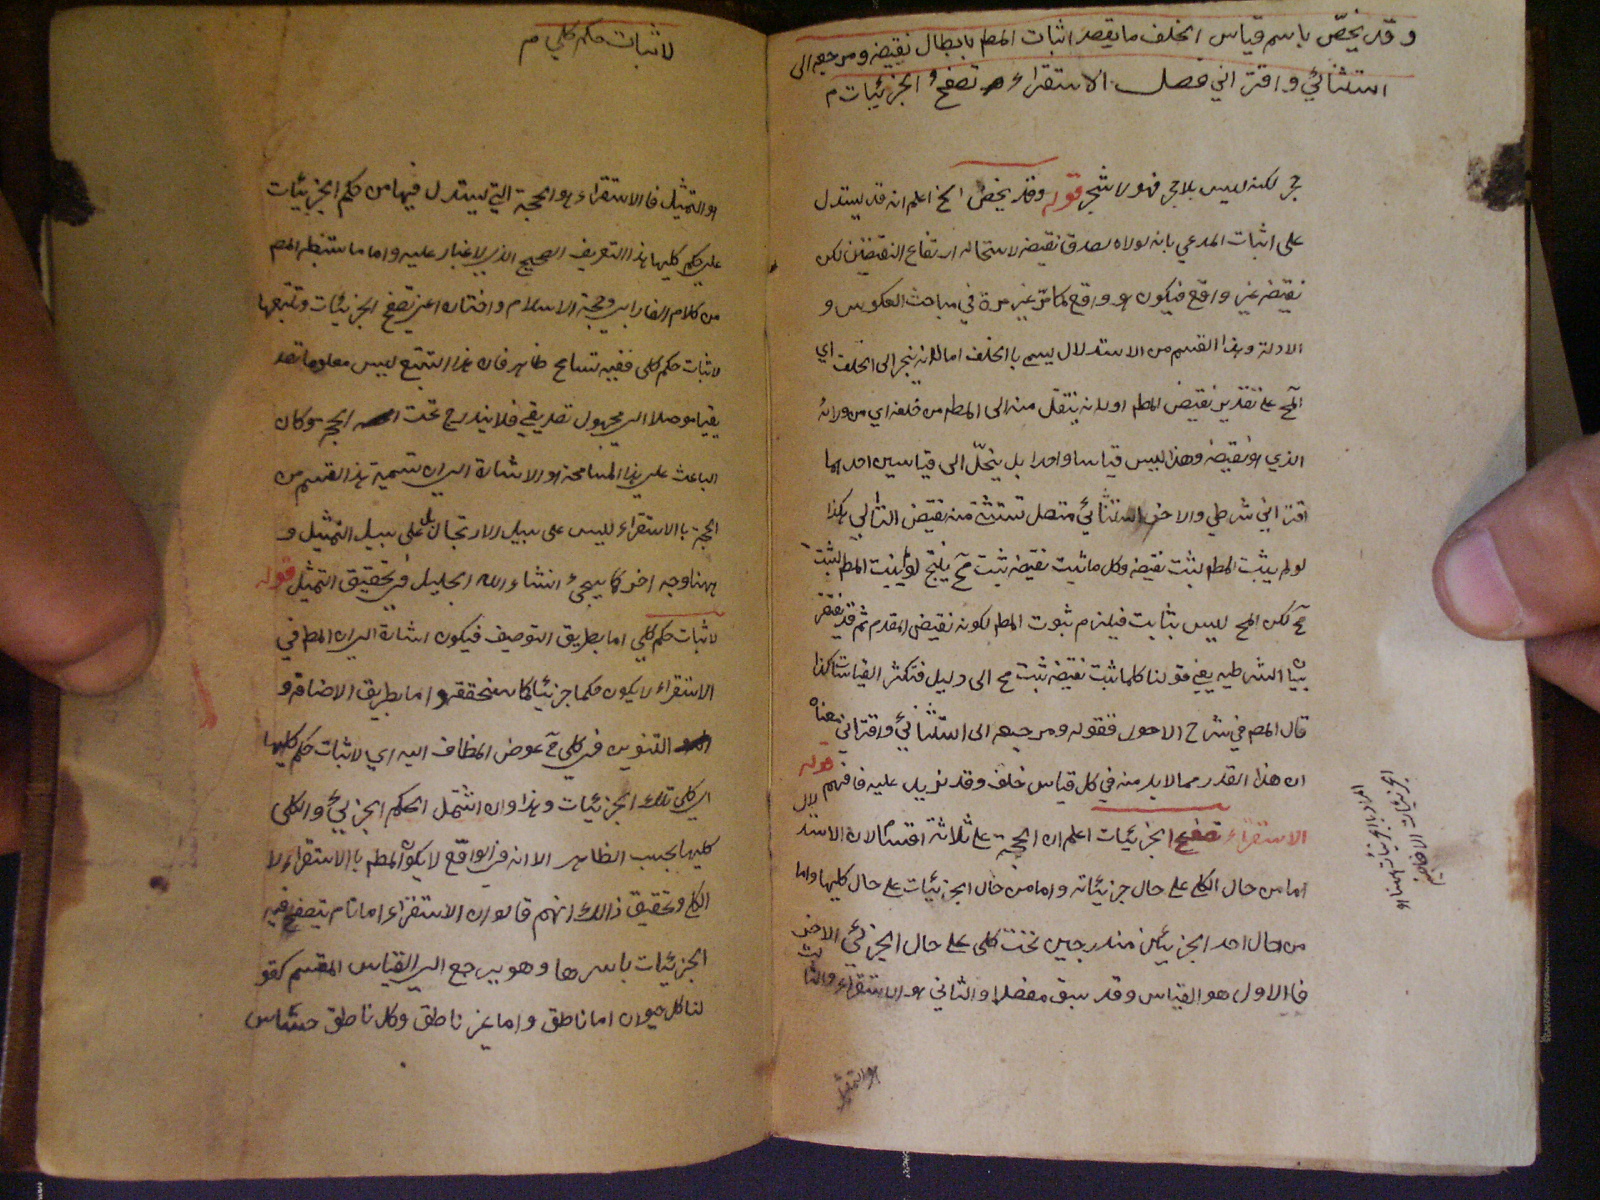 وقد يخص باسم قياس الخلف ما يقصد اثبات المط بابطال نقيضه ومرجعه الى
استثنائي واقتراني فصل الاستقراء تصفح الجزئيات م
حجر لكنه ليس بلا حجر فهو لا شجر قوله وقد يخص الخ اعلم انه قد يستدل
على اثبات المدعي بانه لولاه لصدق نقيضه لاستحالة ارتفاع النقيضين لكن
نقيضه غير واقع فيكون هو واقع كما مر غير مرة في مباحث العكوس و
الادلة وهذا القسم من الاستدلال يسمى بالخلف اما لانه ينجر الى الخلف اي
المح على تقدير نقيض المط او لانه ينتقل منه الى المط من خلفه اي من ورائه
الذي هو نقيضه وهذا ليس قياسا واحدا بل ينحل الى قياسين احدهما
اقتراني شرطي والاخر استثنائي متصل تستثنى منه نقيض التالي هكذا
لو لم يثبت المط لثبت نقيضه وكل ما ثبت نقيضه ثبت مح ينتج لو لم يثبت المط لثبت
مح لكن المح ليس بثابت فيلزم ثبوت المط لكونه نقيض المقدم ثم قد يفتقر
بيان الشرطيه يعني قولنا كلما ثبت نقيضه ثبت مح الى دليل فتكثر القياسات كذا
قال المص في شرح الاصول فقوله ومرجعه الى استثنائي واقتراني معناه
ان هذا القدر مما لابد منه في كل قياس خلف وقد يزيد عليه فافهم قوله
الاستقراء تصفح الجزئيات اعلم ان الحجة على ثلاثة اقسام لان الاستدلال
اما من حال الكلي على حال جزئياته واما من حال الجزئيات على حال كليها واما
من حال احد الجزئيين مندرجين تحت كلى على حال الجزئي الاخر
فالاول هو القياس وقد سبق مفصلا والثاني هو الاستقراء والثالث
هو التمثيل
لاثبات حكم كلي م
هو التمثيل فالاستقراء هو الحجة التي يستدل فيها من حكم الجزئيات
على حكم كليها هذا التعريف الصحيح الذي لا غبار عليه واما ما استنبطه المص
من كلام الفارابي وحجة الاسلام واختاره اعني تصفح الجزئيات وتتبعها
لاثبات حكم كلى ففيه تسامح ظاهر فان هذا التتبع ليس معلوما تصد
يقيا موصلا الى مجهول تصديقي فلا يندرج تحت الحجة وكان
الباعث على هذا المسامحة هو الاشارة الى ان تسمية هذا القسم من
الحجة بالاستقراء ليس على سبيل الارتجال بل على سبيل التمثيل و
ههنا وجه اخر كما سيجئ انشاء الله الجليل في تحقيق التمثيل قوله
لاثبات حكم كلي اما بطريق التوصيف فيكون اشارة الى ان المط في
الاستقراء لا يكون حكما جزئيا كما سنحققه واما بطريق الاضافة و
التنوين في كلي ح عوض المضاف اليه اي لاثبات حكم كليها
اي كلي تلك الجزئيات وهذا وان اشتمل الحكم الجزئي والكلى
كليهما بحسب الظاهر الا انه في الواقع لا يكون المط بالاستقراء الا
الكلي وتحقيق ذالك انهم قالوا ان الاستقراء اما تام يتصفح فيه
الجزئيات باسرها وهو يرجع الى القياس المقسم كقو
لنا كل حيوان اما ناطق واما غير ناطق وكل ناطق حساس